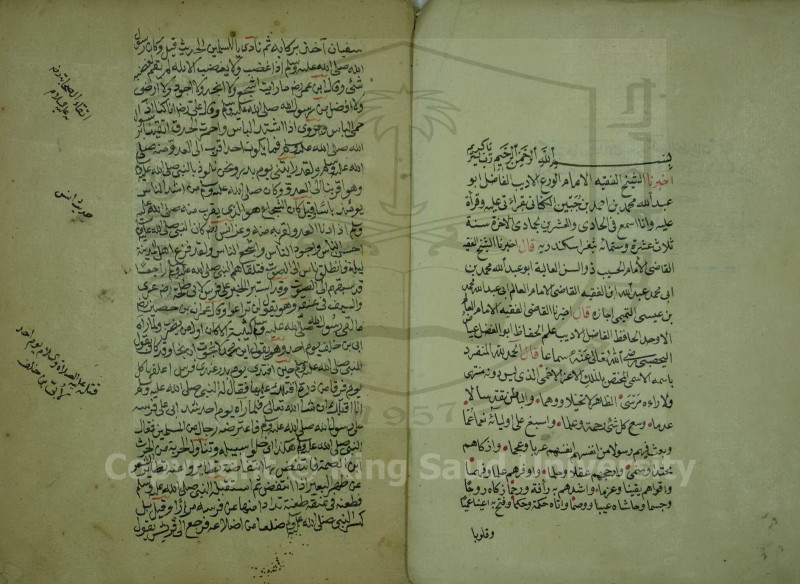 بسم الله الرحمن الرحيم
اخبرنا الشيخ الفقيه الامام الورع الاديب الفاضل ابو
عبد الله محمد بن احمد بن جبير الكناني قراءة عليه
عليه وانا اسمع في الحادي والعشرين بجمادى الاخرة سنة
ثلاث عشرة وستمائة بثغر اسكندرية قال اخبرنا الشيخ الفقيه
القاضي الامام الحسيب ابو عبد الله محمد بن
ابي محمد عبد الله ابن الفقيه القاضي الامام العالم ابي عبد الله محمد
بن عيسى التميمي اجازة قال اخبرنا الفقيه القاضي الامام
الاوحد الحافظ القاضي الاديب علم الحفاظ ابو الفضل عياض
اليحصبي رضي الله تعالى عنه سماعا قال الحمد لله المنفرد
باسمه الاسمى المختص بالملك الاعز الاحمى الذي ليس دونه منتهى
ولا وراءه مرمى الظاهر لا تخيلا ووهما والباطن تقدسا لا
عدما وسع كل شيء رحمة وعلما واسبغ على اوليائه نعما عما
وبعث فيهم رسولا من انفسهم انفسهم عربا وعجما وازكاهم
محتدا ومنمى وارجحهم عقلا وحلما واوفرهم علما وفهما
واقواهم يقينا وعزما واشدهم بهم رأفة ورحما زكاه روحا
وجسما وحاشاه عيبا ووصما واتاه حكمة وحكما وفتح به اعينا عميا
وقلوبا
سفيان آخذ بركابه ثم نادى يا للمسلمين الحديث قيل وكان رسول
الله صلى الله عليه وسلم اذا غضب ولا يغضب الا لله لم يقم لغضبه
شيء وقال ابن عمر رضي ما رايت اشجع ولا انجد ولا اجود ولا ارضى
ولا افضل من رسول الله صلى الله عليه وسلم وقال علي رضي انا كنا اذا
حمي الباس ويروى اذا اشتد الباس واحمرت الحدق اتقينا برسول
الله صلى الله عليه وسلم فما يكون احد اقرب الى العدو منه
ولقد رايتني يوم بدر ونحن نلوذ بالنبي صلى الله عليه
وهو اقربنا الى العدو وكان صلى الله عليه وسلم من اشد الناس
يومئذ باسا وقيل كان الشجاع هو الذي يقرب منه صلى الله عليه
وسلم اذا دنا العدو لقربه منه وعن انس رضي كان النبي صلى الله عليه وسلم
احسن الناس واجود الناس واشجع الناس ولقد فزع اهل المدينة
ليلة وانطلق ناس الى الصوت فتلقاهم النبي صلى الله عليه وسلم راجعا
قد سبقهم الى الصوت وقد استبرا الخبر على فرس لابي طلحة عري
والسيف في عنقه وهو يقول لن تراعوا وقال عمران بن حصين رضي
ما لقي رسول الله صلى الله عليه وسلم كتيبة الا كان اول من يضرب ولما رآه
ابي بن خلف يوم احد وهو يقول اين محمد لا نجوت ان نجا وقد كان يقول
للنبي صلى الله عليه وسلم حين افتدي يوم بدر عندي فرس اعلفها كل
يوم فرقا من ذرة اقتلك عليها فقال له النبي صلى الله عليه وسلم
انا اقتلك ان شاء الله تعالى فلما رآه يوم احد شد ابي على فرسه
على رسول الله صلى الله عليه وسلم فاعترضه رجال من المسلمين فقال
النبي صلى الله عليه وسلم هكذا اي خلوا سبيله وتناول الحربة من الحرث
ابن الصمة فانتفض بها انتفاضة
عن ظهر البعير اذا انتفض ثم استقبله النبي صلى الله عليه وسلم
فطعنه في عنقه طعنة تدادا منها عن فرسه مرارا وقيل بل
كسر النبي صلى الله عليه وسلم ضلعا من اضلاعه فرجع الى قريش يقول
حديث انس
Copyright © King Saud University
1957